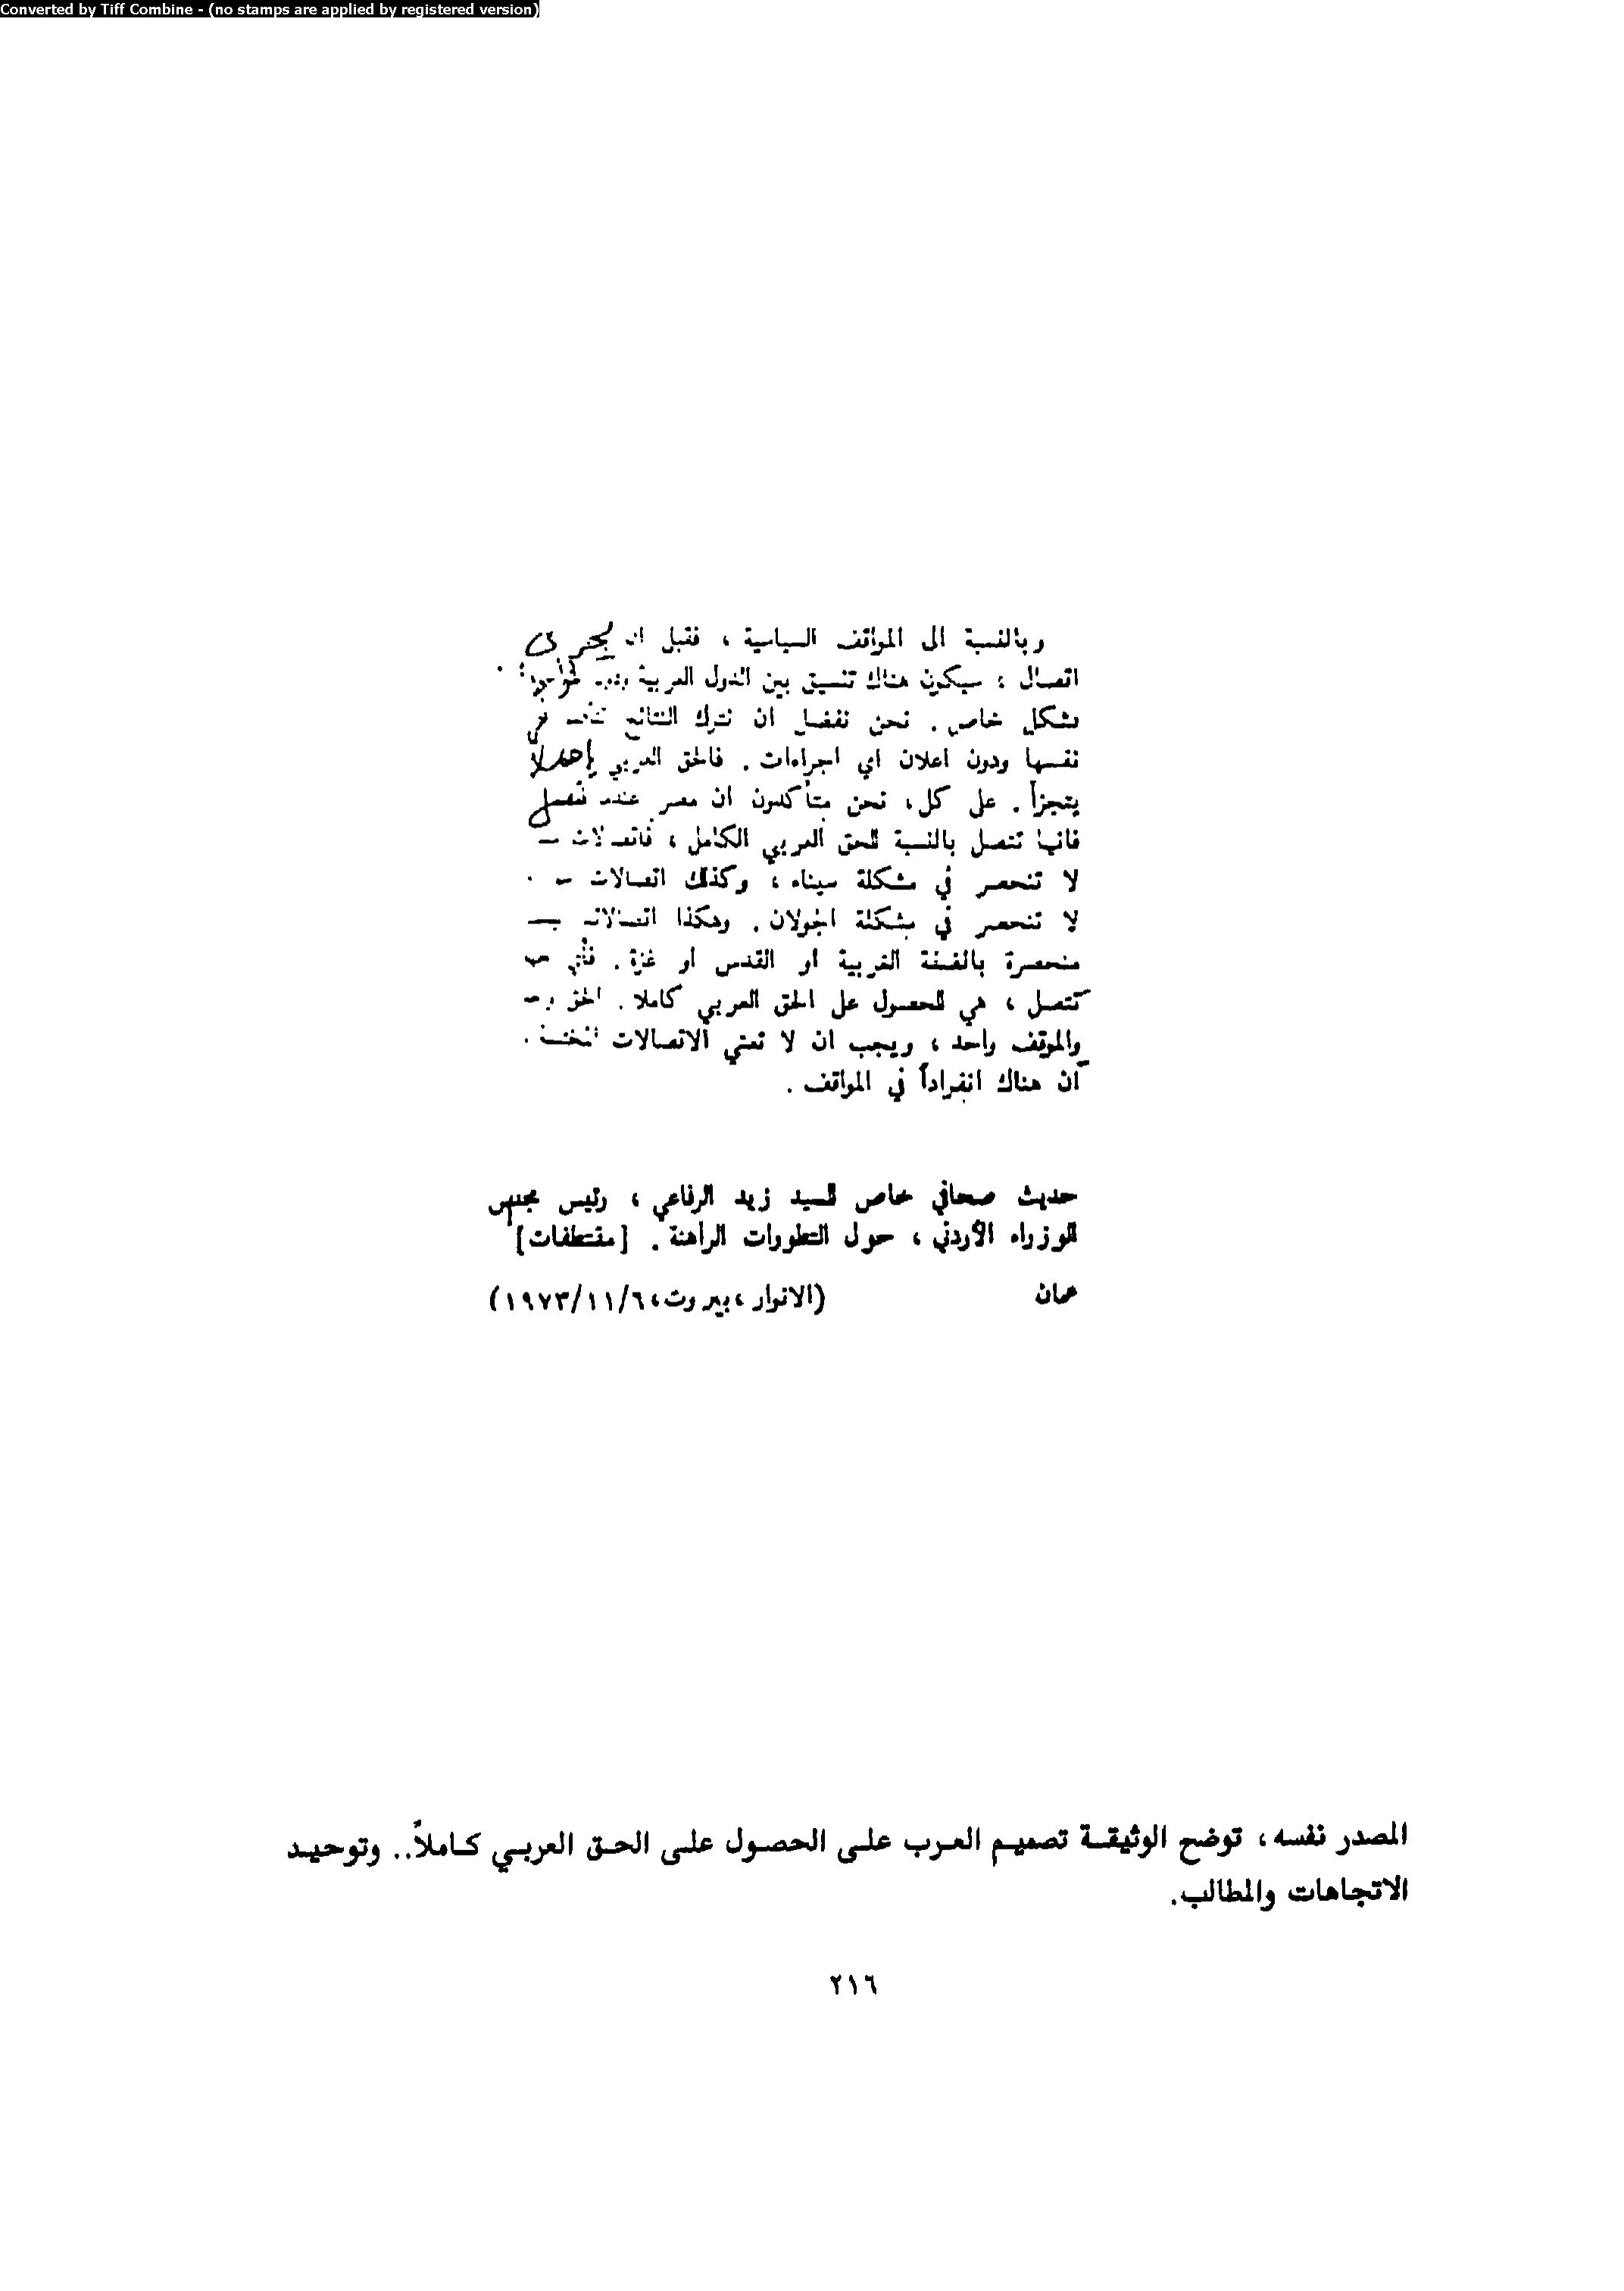 Converted by Tiff Combine - (no stamps are applied by registered version)
وبالنسبة الى المواقف السياسية ، فقبل ان يجري
اتصال ، سيكون هناك تنسيق بين الدول العربية
بشكل خاص . نحن نفضل ان نترك النتائج
نفسها ودون اعلان اي اجراءات . فالحق العربي لا
يتجزأ . على كل، نحن متأكدون ان مصر عندما تتصل
فانها تتصل بالنسبة للحق العربي الكامل ،
لا تنحصر في مشكلة سيناء ، وكذلك اتصالات
لا تنحصر في مشكلة الجولان . وهكذا
منحصرة بالضفة الغربية او القدس او غزة .
تتصل ، هي للحصول على الحق العربي كاملا . الحق
والموقف واحد ، ويجب ان لا تعني الاتصالات
ان هناك انفراداً في المواقف .
حديث صحافي خاص للسيد زيد الرفاعي ، رئيس مجلس
الوزراء الأردني ، حول التطورات الراهنة . [مقتطفات]
عمان (الانوار ،بيروت،٦/١١/١٩٧٣)
المصدر نفسه، توضح الوثيقة تصميم العرب على الحصول على الحق العربي كاملاً.. وتوحيد
الاتجاهات والمطالب.
٢١٦